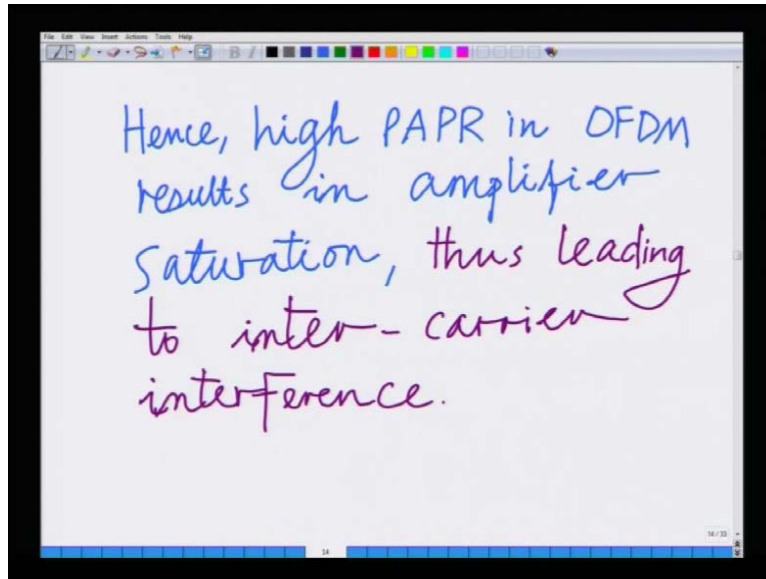 File Edit View Insert Actions Tools Help
B I
Hence, high PAPR in OFDM
results in amplifier
saturation, thus leading
to inter-carrier
interference.
14/33
14